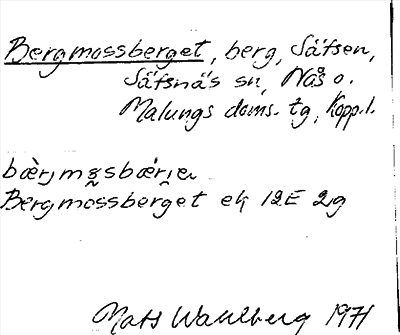 Bergmossberget, berg, Säfsen,
Säfsnäs sn, Nås o.
Malungs doms. tg, Kopp. l.
Bergmossberget ek 12E 2g
Mats Wahlberg 1971